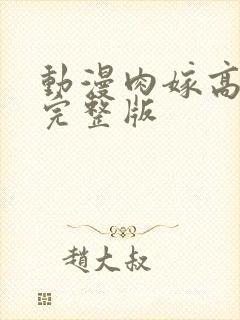 動漫肉嫁高
完整版
趙大叔